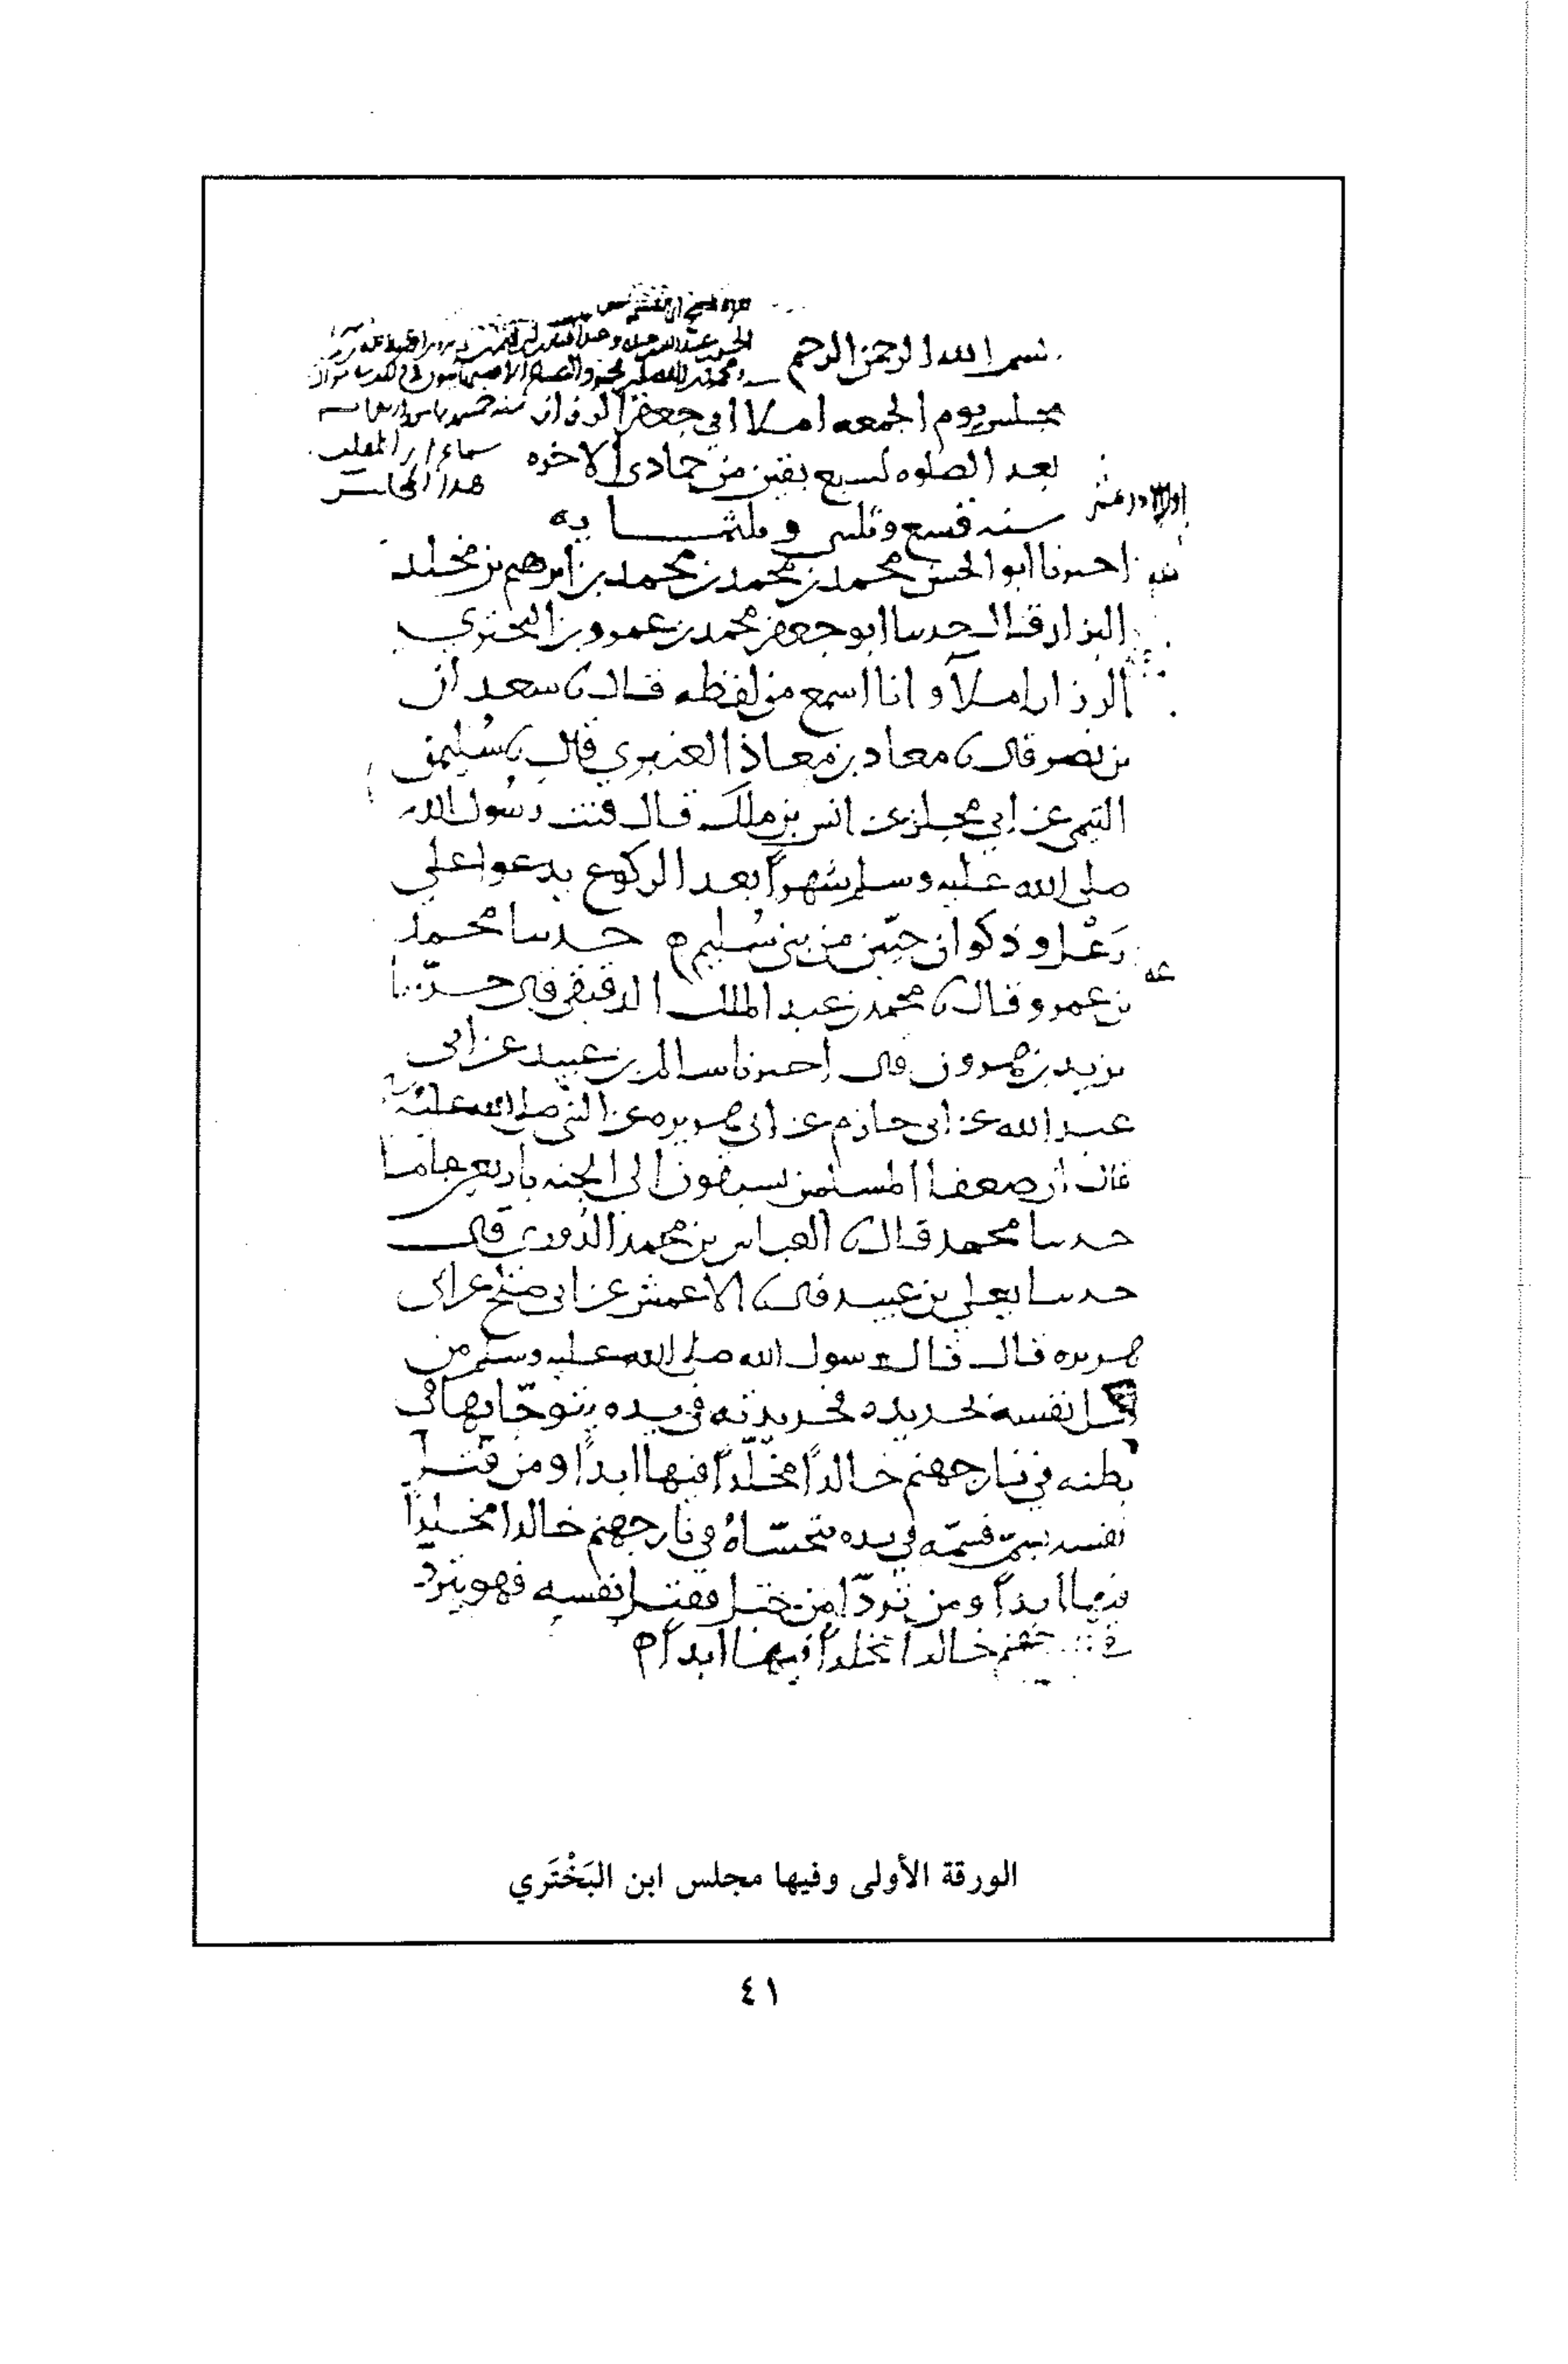 بسم الله الرحمن الرحيم
مجلس يوم الجمعه املا ابي جعفر الرزاز
بعد الصلوه لسبع بقين من جمادى الاخره
سماع
هذا المجلس
سنه تسع وثلثين وثلثمايه
اخبرنا ابو الحسن محمد بن محمد بن محمد بن ابرهيم بن مخلد
البزاز قال حدثنا ابو جعفر محمد بن عمرو بن البختري
الرزاز املآ وانا اسمع من لفظه قال ثنا سعدان
بن نصر قال ثنا معاذ بن معاذ العنبري قال ثنا سُليمن
التيمي عن ابي مجلز عن انس بن ملك قال قنت رسُول الله
صلى الله عليه وسلم شهراً بعد الركوع يدعوا على
رَعْل وذكوان حيّين من بني سُليم ه حدثنا محمد
بن عمرو قال ثنا محمد بن عبد الملك الدقيقي قال حدّثنا
يزيد بن هرون قال اخبرنا سالم بن عبيد عن ابي
عبد الله عن ابي حازم عن ابي هريره عن النبي صلى الله عليه
قال ان ضعفا المسلمين يسبقون الى الجنه باربعين عاما
حدثنا محمد قال ثنا العباس بن محمد الدُوري قال
حدثنا يعلى بن عبيد قال ثنا الاعمش عن ابي صلح عن ابي
هريره قال قال رسول الله صلى الله عليه وسلم من
قتل نفسه بحديده فحديدته في يده يتوجّا بها في
بطنه في نار جهنم خالداً مخلّداً فيها ابداً ومن قتل
نفسه بسمّ فسمّه في يده يتحسّاهُ في نار جهنم خالدا مخلداً
فيها ابداً ومن تردّا من جبل فقتل نفسه فهو يتردّ
في نار جهنم خالدا مخلداً فيها ابداً م
الورقة الأولى وفيها مجلس ابن البَخْتَري
٤١